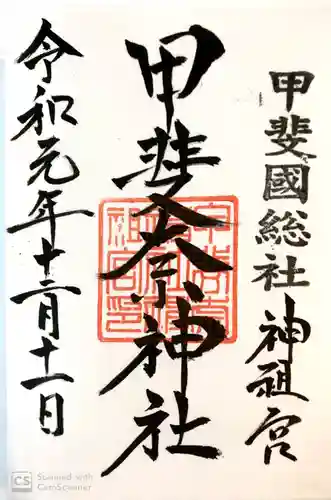 甲斐國総社 神祖宮
甲斐奈神社
令和元年十二月十一日
CS Scanned with
CamScanner